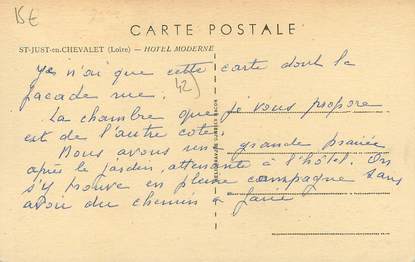 15€
CARTE POSTALE
ST-JUST-en-CHEVALET (Loire) — HOTEL MODERNE
42)
Je n'ai que cette carte dont la
façade rue.
La chambre que je vous propose
est de l'autre coté.
Nous avons une grande prairie
après le jardin, attenante à l'hôtel. On
s'y trouve en pleine campagne sans
avoir du chemin à faire